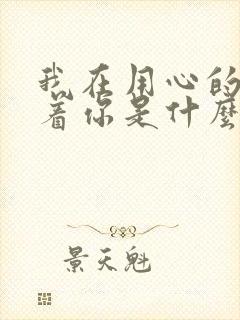 我在用心的
着你是什麼
景天魁